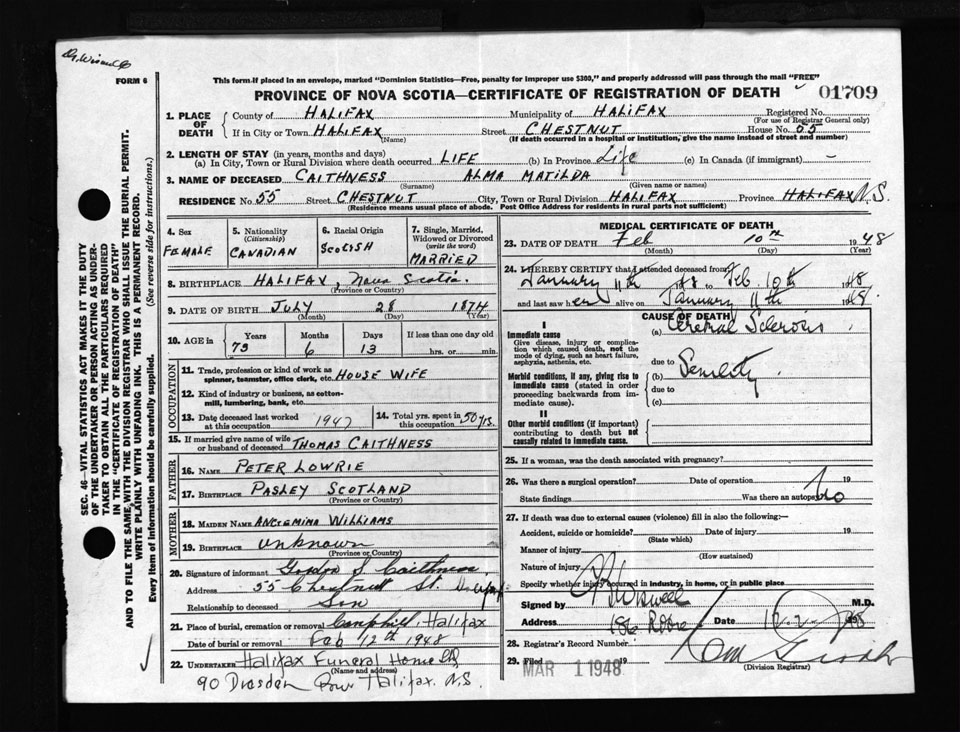 FORM 6
This form if placed in an envelope, marked "Dominion Statistics—Free, penalty for improper use $300," and properly addressed will pass through the mail "FREE"
PROVINCE OF NOVA SCOTIA—CERTIFICATE OF REGISTRATION OF DEATH
01709
1. PLACE OF DEATH
County of HALIFAX Municipality of HALIFAX Registered No.
(For use of Registrar General only)
If in City or Town HALIFAX (Name) Street CHESTNUT House No. 55
(If death occurred in a hospital or institution, give the name instead of street and number)
2. LENGTH OF STAY (in years, months and days)
(a) In City, Town or Rural Division where death occurred LIFE (b) In Province Life (c) In Canada (if immigrant) —
3. NAME OF DECEASED CAITHNESS ALMA MATILDA
(Surname) (Given name or names)
RESIDENCE No. 55 Street CHESTNUT City, Town or Rural Division HALIFAX Province HALIFAX N.S.
(Residence means usual place of abode. Post Office Address for residents in rural parts not sufficient)
4. Sex FEMALE
5. Nationality (Citizenship) CANADIAN
6. Racial Origin SCOTISH
7. Single, Married, Widowed or Divorced (write the word) MARRIED
8. BIRTHPLACE HALIFAX, Nova Scotia.
(Province or Country)
9. DATE OF BIRTH JULY 28 1874
(Month) (Day) (Year)
10. AGE in Years 73 Months 6 Days 13 If less than one day old hrs. or min.
OCCUPATION
11. Trade, profession or kind of work as spinner, teamster, office clerk, etc. HOUSE WIFE
12. Kind of industry or business, as cotton-mill, lumbering, bank, etc.
13. Date deceased last worked at this occupation 1947
14. Total yrs. spent in this occupation 50 yrs.
15. If married give name of wife or husband of deceased THOMAS CAITHNESS
FATHER
16. NAME PETER LOWRIE
17. BIRTHPLACE PASLEY SCOTLAND
(Province or Country)
MOTHER
18. MAIDEN NAME ANCLEMINA WILLIAMS
19. BIRTHPLACE unknown
(Province or Country)
20. Signature of informant Gordon S. Caithness
Address 55 Chestnutt St. Halifax
Relationship to deceased Son
21. Place of burial, cremation or removal Camphill, Halifax
Date of burial or removal Feb 12th 1948
22. UNDERTAKER Halifax Funeral Home Ltd
(Name and address)
90 Dresden Row Halifax. N.S.
MEDICAL CERTIFICATE OF DEATH
23. DATE OF DEATH Feb 10th 1948
(Month) (Day) (Year)
24. I HEREBY CERTIFY that I attended deceased from
January 11th 1948 to Feb. 10th 1948
and last saw her alive on January 11th 1948.
CAUSE OF DEATH
I
Immediate cause
Give disease, injury or complication which caused death, not the mode of dying, such as heart failure, asphyxia, asthenia, etc.
(a) Cerebral Sclerosis
due to
Morbid conditions, if any, giving rise to immediate cause (stated in order proceeding backwards from immediate cause).
(b) Senility
due to
(c)
II
Other morbid conditions (if important) contributing to death but not causally related to immediate cause.
25. If a woman, was the death associated with pregnancy?
26. Was there a surgical operation? Date of operation 19
State findings Was there an autopsy? No
27. If death was due to external causes (violence) fill in also the following:—
Accident, suicide or homicide? Date of injury 19
(State which)
Manner of injury
(How sustained)
Nature of injury
Specify whether injury occurred in industry, in home, or in public place
Signed by M.D.
Address Date 12-2-48
28. Registrar's Record Number
29. Filed MAR 1 1948 19
(Division Registrar)
SEC. 46—VITAL STATISTICS ACT MAKES IT THE DUTY
OF THE UNDERTAKER OR PERSON ACTING AS UNDER-
TAKER TO OBTAIN ALL THE PARTICULARS REQUIRED
IN THE "CERTIFICATE OF REGISTRATION OF DEATH"
AND TO FILE THE SAME, WITH THE DIVISION REGISTRAR WHO SHALL ISSUE THE BURIAL PERMIT.
WRITE PLAINLY WITH UNFADING INK. THIS IS A PERMANENT RECORD.
Every item of information should be carefully supplied. (See reverse side for instructions.)